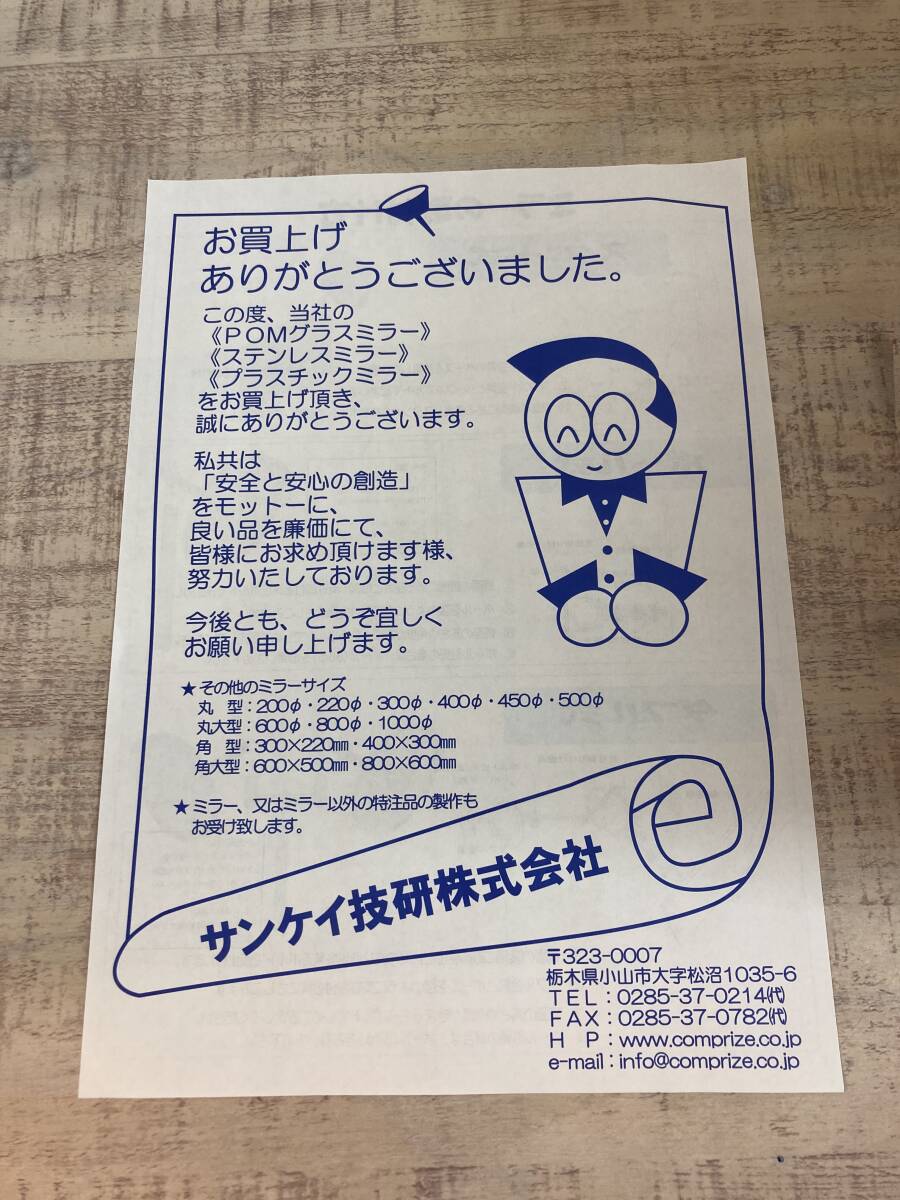 お買上げ
ありがとうございました。
この度、当社の
《ＰＯＭグラスミラー》
《ステンレスミラー》
《プラスチックミラー》
をお買上げ頂き、
誠にありがとうございます。
私共は
「安全と安心の創造」
をモットーに、
良い品を廉価にて、
皆様にお求め頂けます様、
努力いたしております。
今後とも、どうぞ宜しく
お願い申し上げます。
★その他のミラーサイズ
丸　型：200φ・220φ・300φ・400φ・450φ・500φ
丸大型：600φ・800φ・1000φ
角　型：300×220㎜・400×300㎜
角大型：600×500㎜・800×600㎜
★ミラー、又はミラー以外の特注品の製作も
お受け致します。
サンケイ技研株式会社
〒323-0007
栃木県小山市大字松沼1035-6
ＴＥＬ：0285-37-0214㈹
ＦＡＸ：0285-37-0782㈹
Ｈ　Ｐ：www.comprize.co.jp
e-mail：info@comprize.co.jp